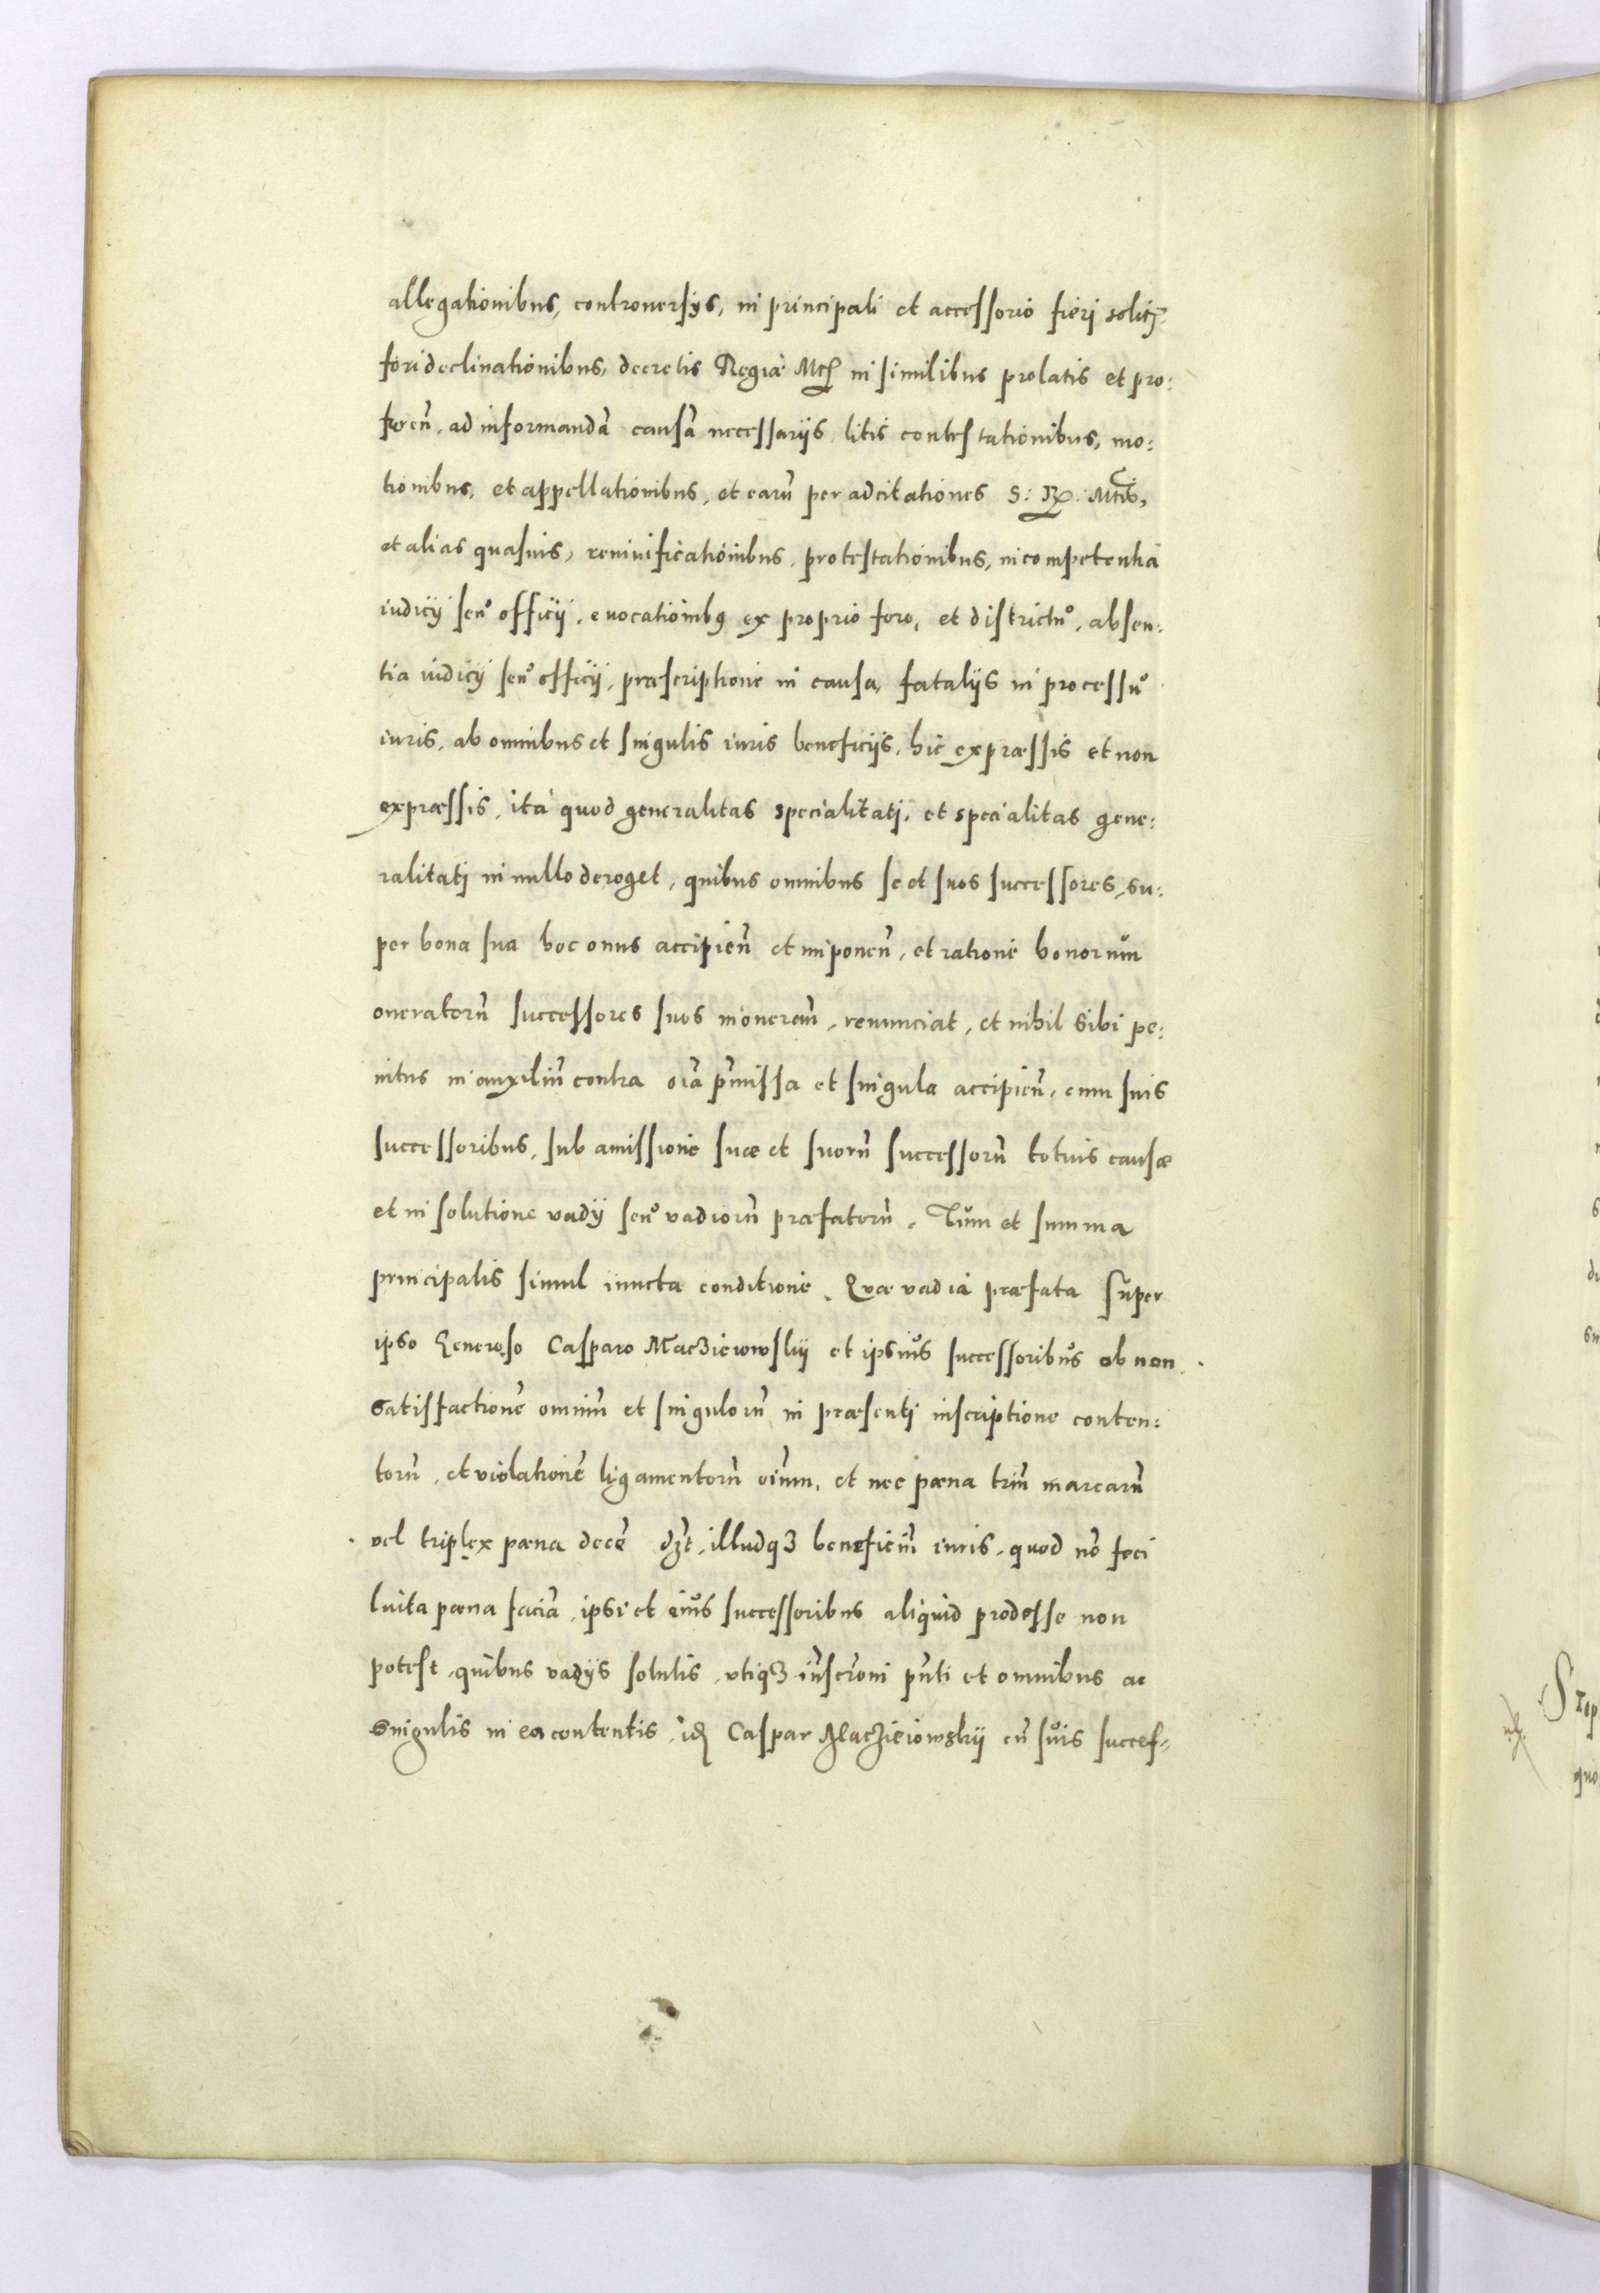 allegationibus, controuersijs, in principali et accessorio fieri solitis
fori declinationibus, decretis Regiae Mtis in similibus prolatis et pro:
feren̄, ad informandā causā necessarijs, litis contestationibus, mo:
tionibus, et appellationibus, et earū per adcitationes S: R: Mtis,
et alias quasuis, reniuificationibus, protestationibus, incompetentia
iudicij seu officij, euocationibꝰ ex proprio foro, et districtu, absen:
tia iudicij seu officij, præscriptione in causa, fatalijs in processu
iuris, ab omnibus et singulis iuris beneficijs, hic expræssis et non
expræssis, ita quod generalitas specialitatj, et specialitas gene:
ralitatj in nullo deroget, quibus omnibus se et suos successores, su:
per bona sua hoc onus accipien̄ et imponen̄, et ratione bonorum
oneratorū successores suos in oneran̄, renunciat, et nihil sibi pe:
nitus in auxiliū contra oīa p̄missa et singula accipien̄, cum suis
successoribus, sub amissione suæ et suorū successorū totius causæ
et in solutione vadij seu vadiorū præfatorū. Tum et summa
principalis simul iuncta conditione. Quæ vadia præfata super
ipso Generoso Casparo Macziewowskij et ipsius successoribus ob non
satisfactionē omniū et singulorū in præsentj inscriptione conten:
torū, et violationē ligamentorū oīum, et nec pæna triū marcarū
vel triplex pæna decē dʒt, illudqʒ beneficiū iuris, quod nō feci
luita pæna faciā, ipsi et eius successoribus aliquid prodesse non
potest, quibus vadijs solutis, vtiqʒ inscr̄oni pn̄ti et omnibus ac
singulis in ea contentis, idē Caspar Macziéiowskij cū suis succes-
Step
quo